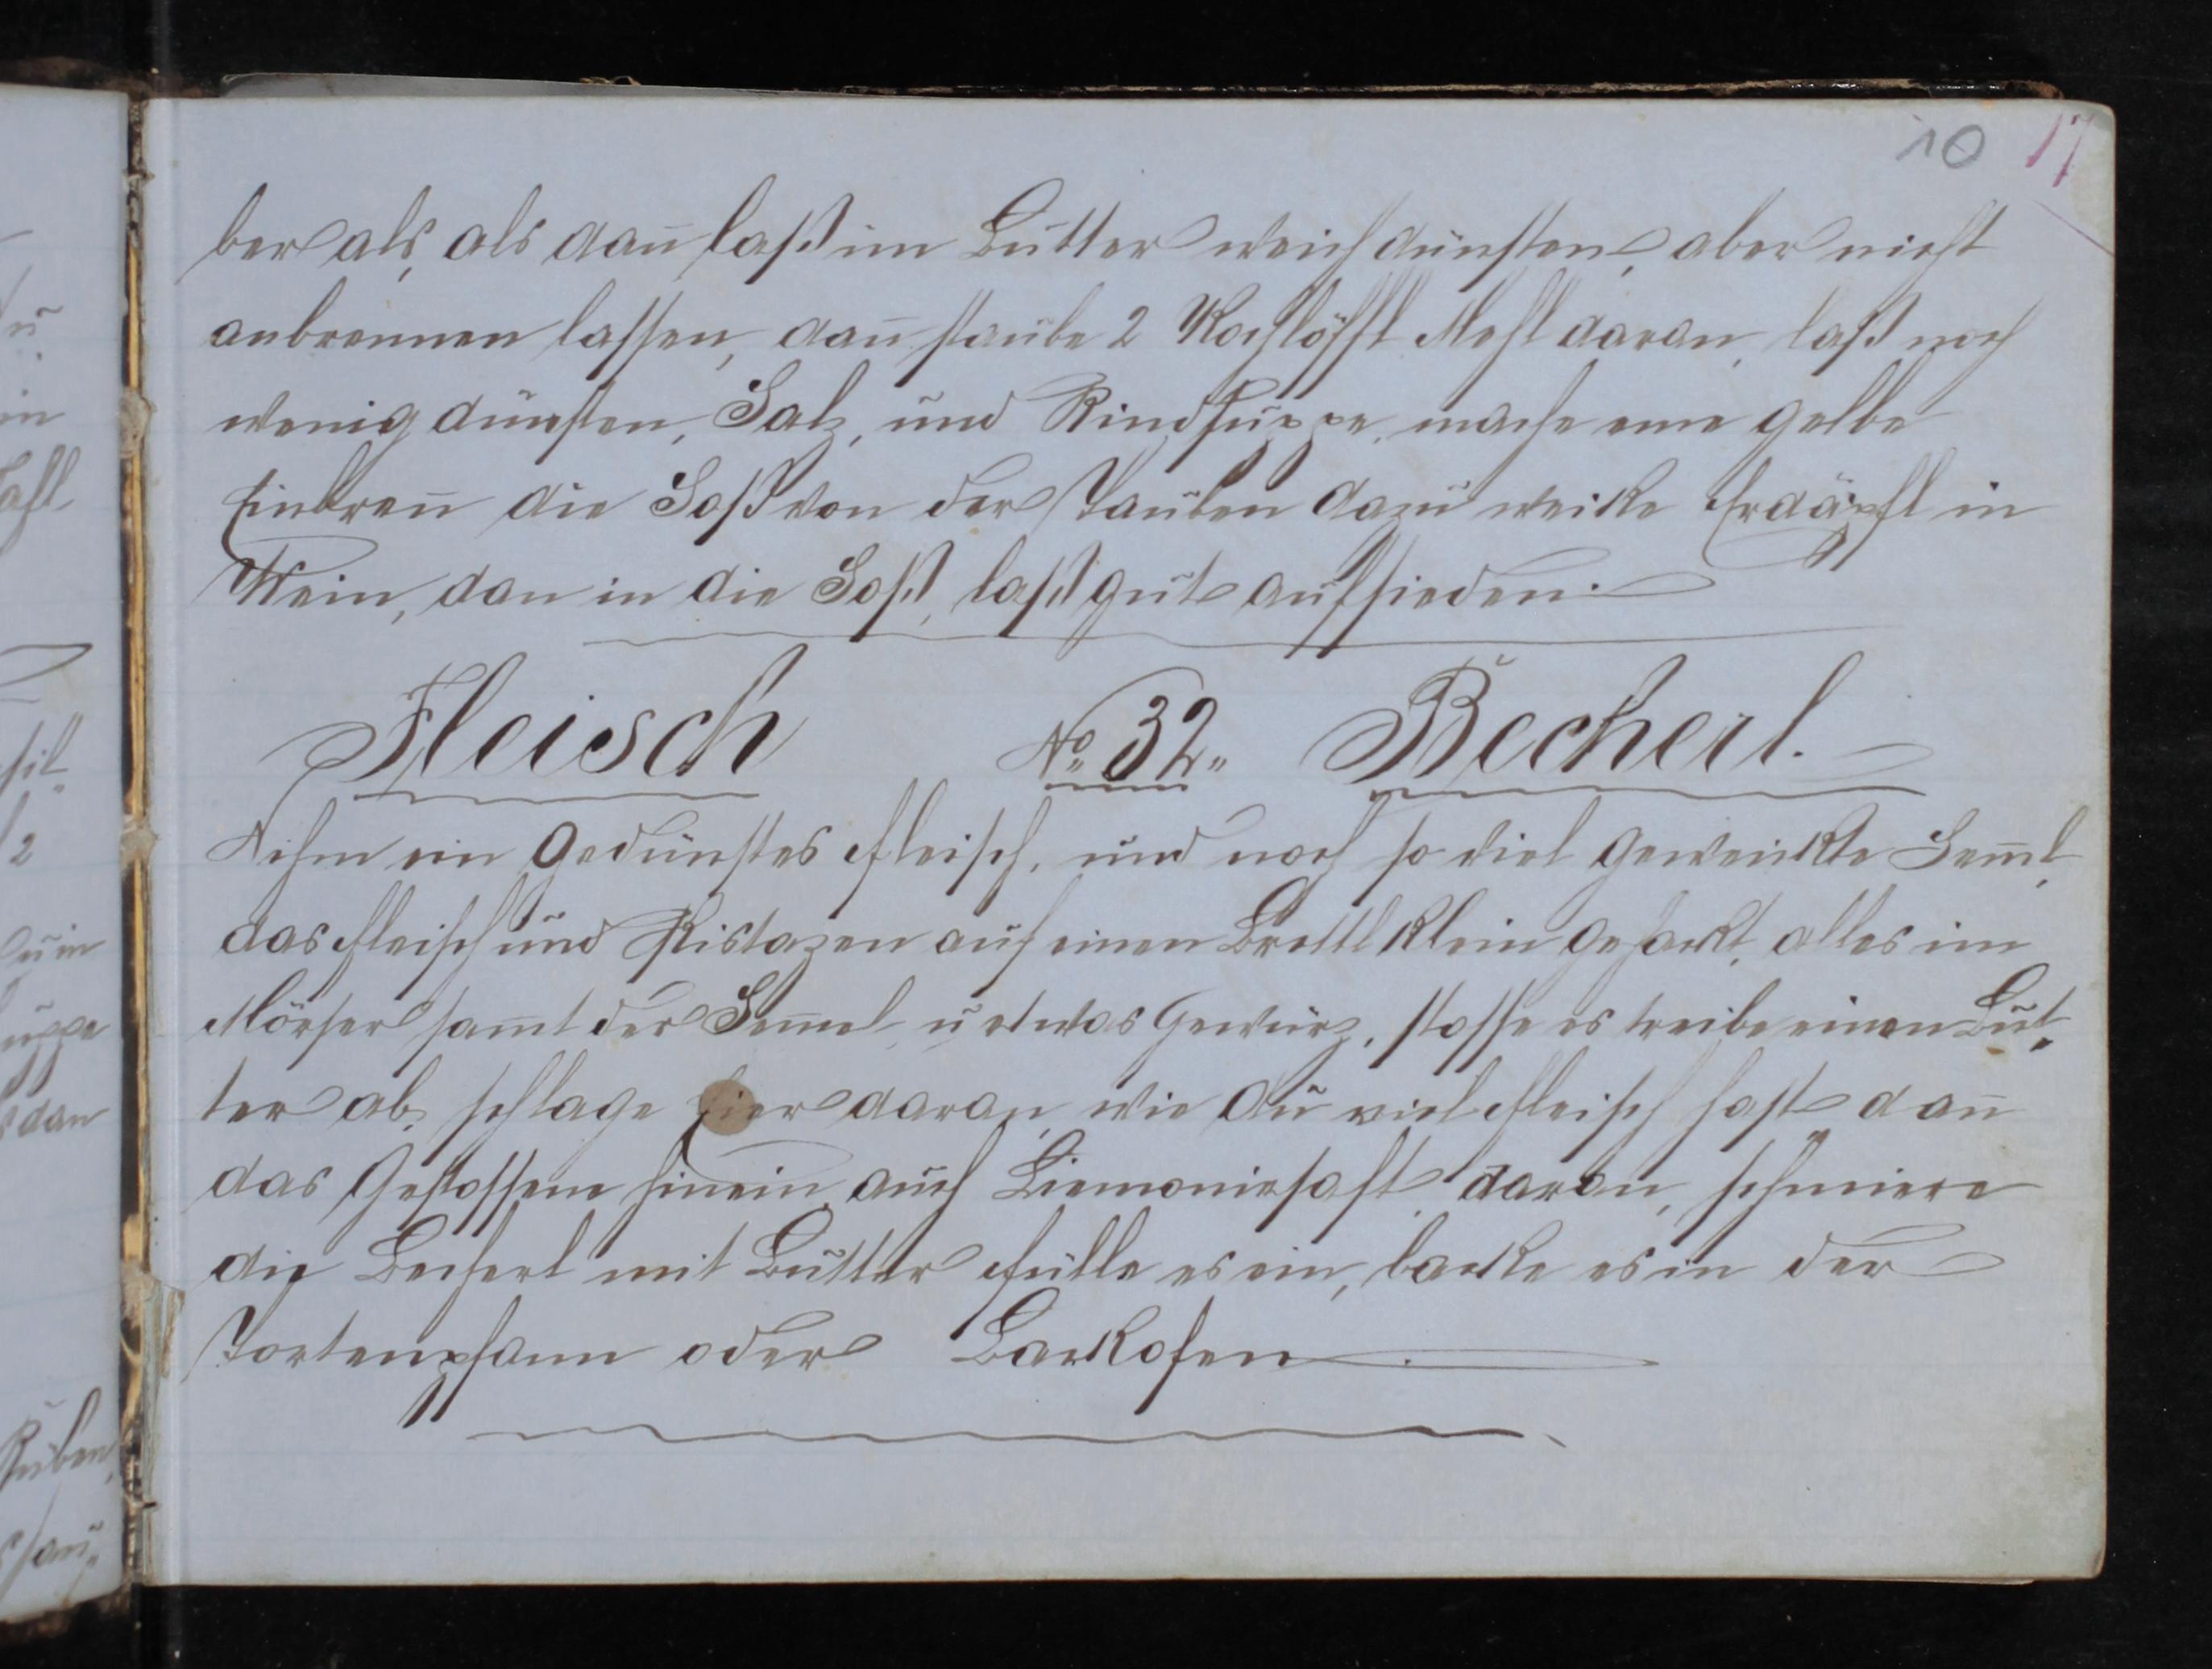 10 17
ber als, als dan̄ laß im Butter weich dünsten, aber nicht
anbrennen lassen, dan̄ staube 2 Kochlöffl Mehl daran, laß noch
wenig dünsten, Salz, und Rindsuppe, mache eine gelbe
Einbren̄ die Soß von der Tauben dazu weike Erdäpfl in
Wein, dan in die Soß, laß gut aufsieden.
Fleisch No 32. Becherl.
Nihm ein Gedünstes Fleisch, und noch so viel geweickte Sem̄l,
das Fleisch und Pistazen auf einen Brettl klein gehackt, alles im
Mörser sam̄t der Sem̄el, u etwas Gewürz, stosse es treibe einen But„
ter ab, schlage Eier daran, wie du viel Fleisch hast dan̄
das Gestossene hinein auch Liemoniesaft daran, schmiere
die Becherl mit Butter fülle es ein, backe es in der
Tortenpfann oder Backofen.